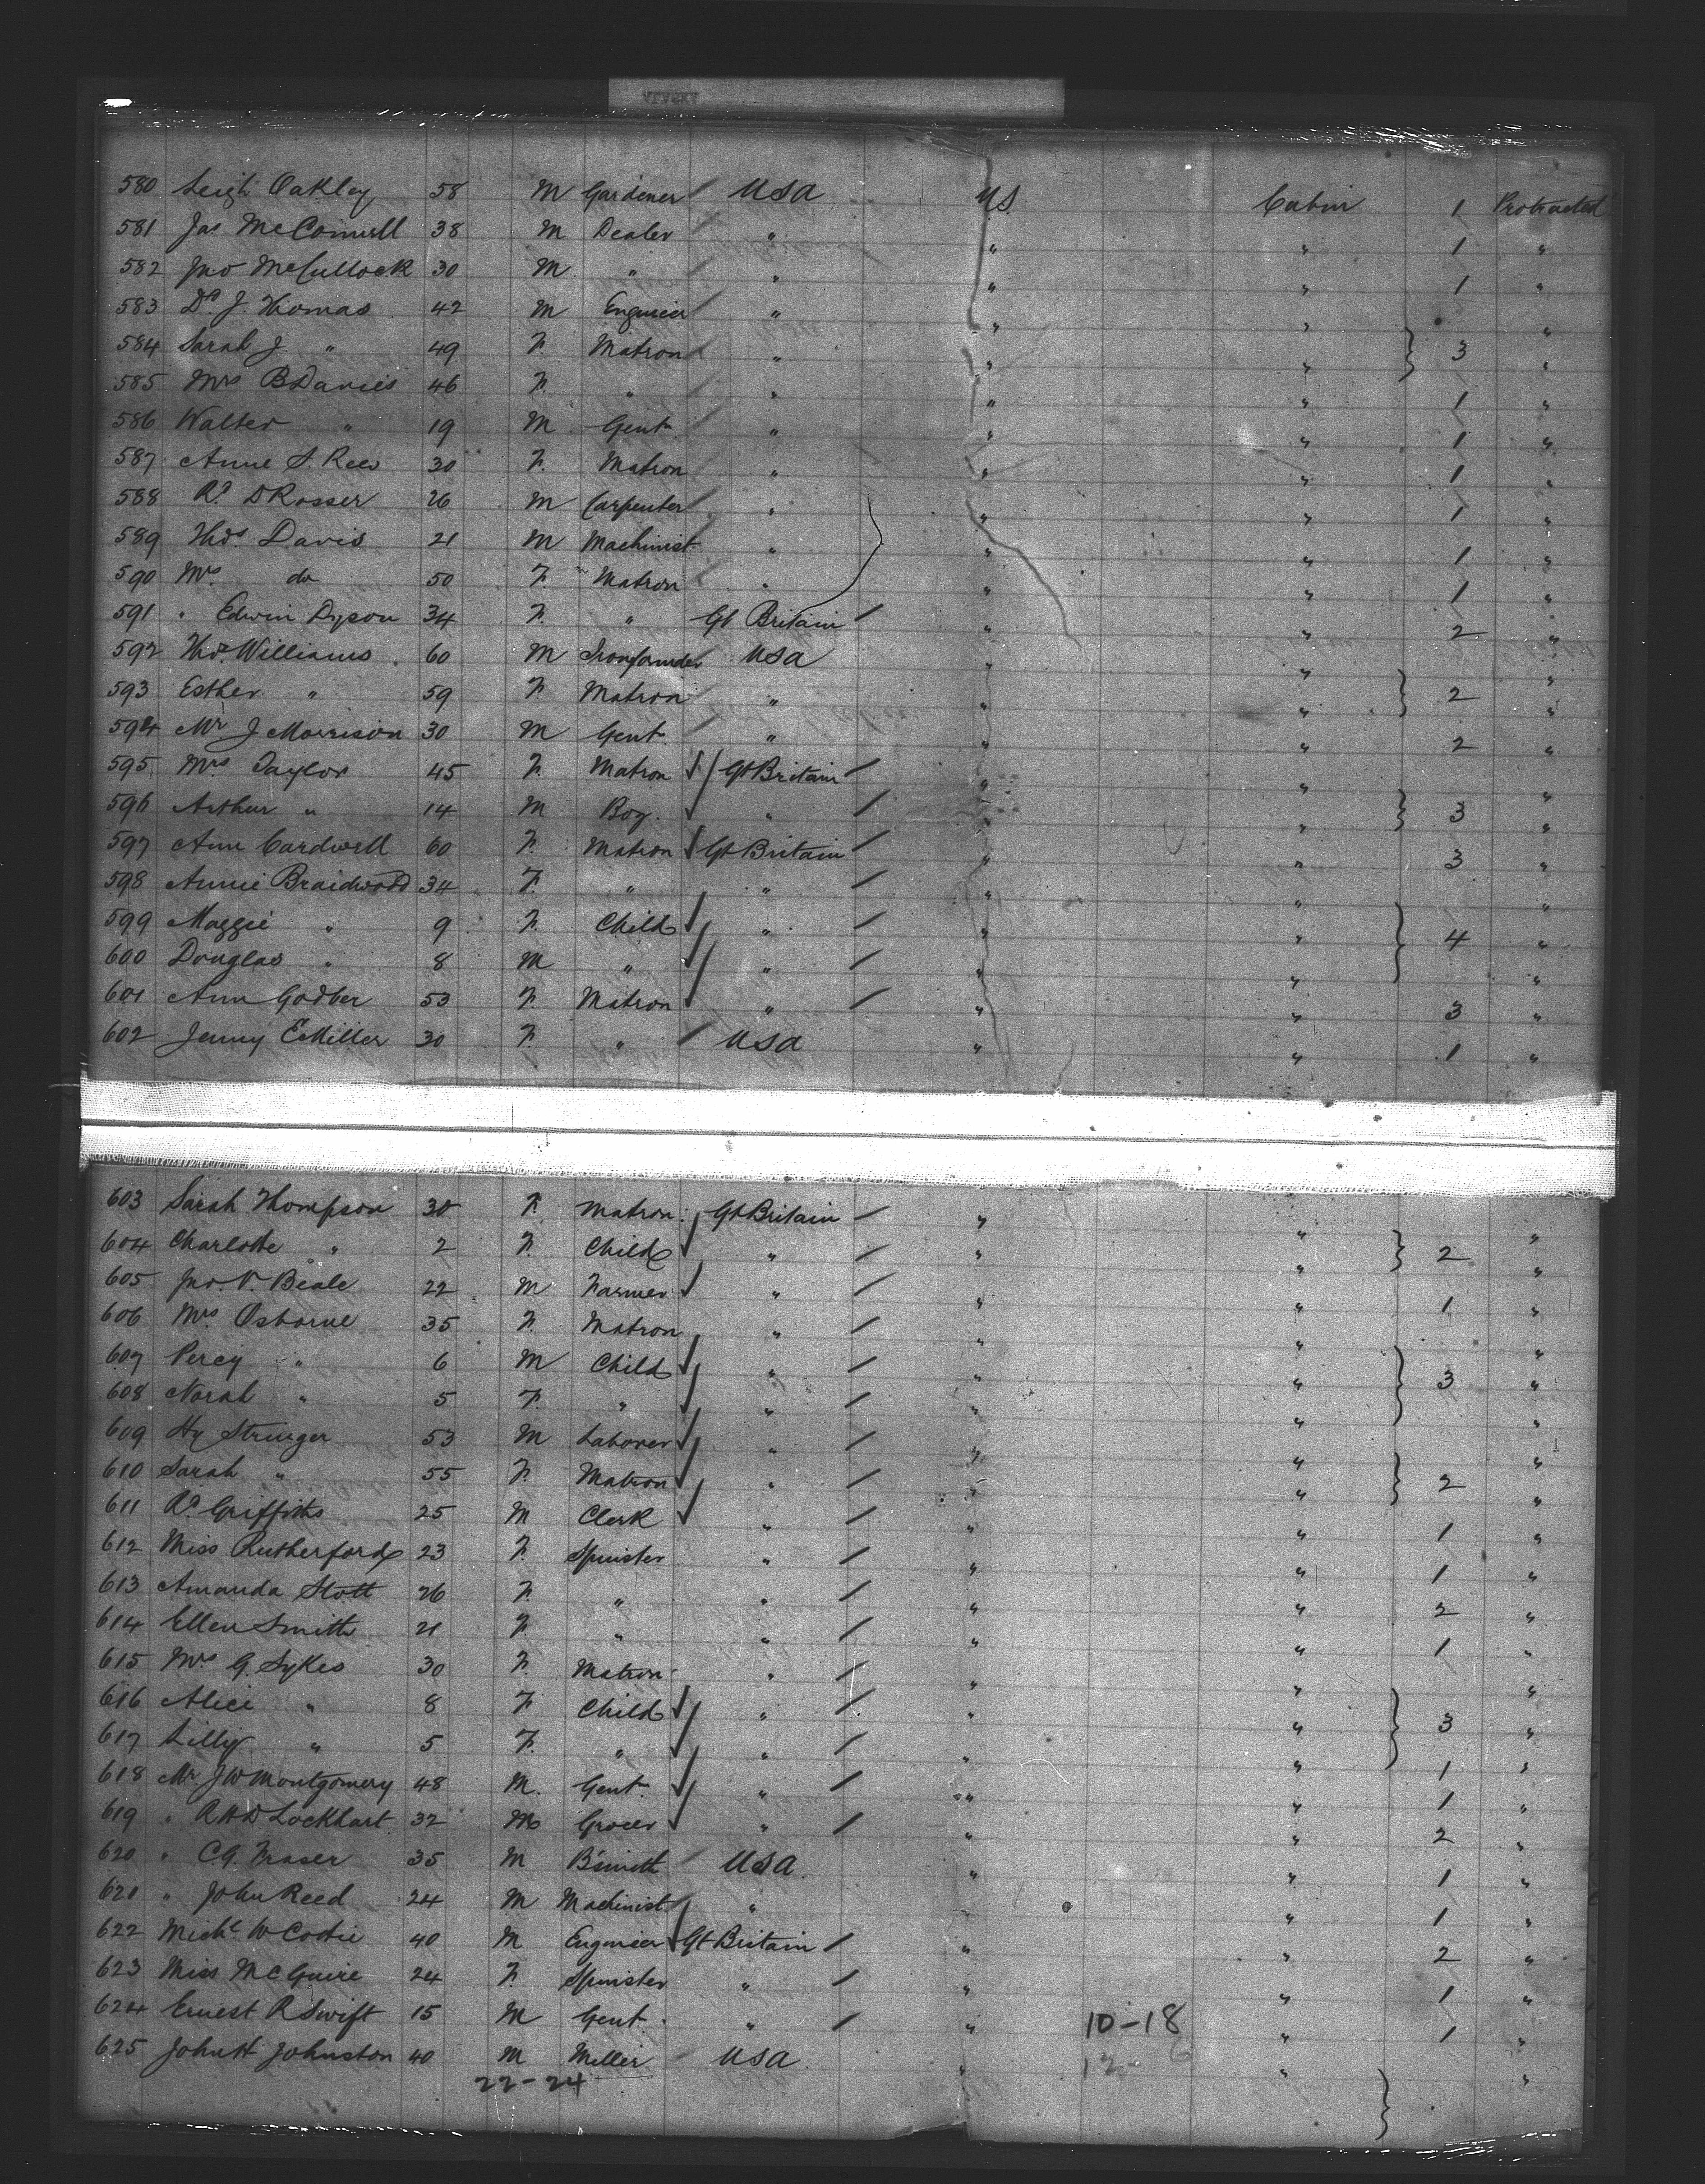 580 Leigh Oakley 58 M Gardener / USA US. Cabin 1 Protracted
581 Jas McConnell 38 M Dealer / " " " 1 "
582 Jno McCullock 30 M " / " " " 1 "
583 Dd. J. Thomas 42 M Engineer / " " " "
584 Sarah J " 49 F. Matron / " " " } 3 "
585 Mrs B Davies 46 F. " " " " 1 "
586 Walter " 19 M Gent. / " " " 1 "
587 Anne S. Rees 30 F. Matron / " " " 1 "
588 Rd. D Rosser 26 M Carpenter / " " " 1 "
589 Thos. Davis 21 M Machinist " " " 1 "
590 Mrs. do 50 F. Matron / " " " 1 "
591 " Edwin Dyson 34 F. " Gt Britain / " " 2 "
592 Thos. Williams 60 M Ironfounder USA " " "
593 Esther " 59 F. Matron / " " " } 2 "
594 Mr J Morrison 30 M Gent. / " " " 2 "
595 Mrs Taylor 45 F. Matron Gt Britain / " " "
596 Arthur " 14 M Boy. " / " } 3 "
597 Ann Cardwell 60 F. Matron Gt Britain / " " 3 "
598 Annie Braidwood 34 F. " " / " " "
599 Maggie " 9 F. Child " / " " } 4 "
600 Douglas " 8 M " " / " " "
601 Ann Godber 53 F. Matron " / " " 3 "
602 Jenny E Miller 30 F. " / USA " " 1 "
603 Sarah Thompson 30 F. Matron. Gt Britain / " " "
604 Charlotte " 2 F. Child " / " " } 2 "
605 Jno. V. Beale 22 M Farmer " / " " 1 "
606 Mrs. Osborne 35 F. Matron " / " " "
607 Percy " 6 M Child " / " " } 3 "
608 Norah " 5 F. " " / " " "
609 Hy Stringer 53 M Laborer " / " " "
610 Sarah " 55 F. Matron " / " " } 2 "
611 Rd. Griffiths 25 M Clerk " / " " 1 "
612 Miss Rutherford 23 F. Spinster " / " " 1 "
613 Amanda Stott 26 F. " " / " " 2 "
614 Ellen Smith 21 F. " " / " " 1 "
615 Mrs G. Sykes 30 F. Matron " / " " "
616 Alice " 8 F Child " / " " } 3 "
617 Lilly " 5 F. " " / " " 1 "
618 Mr. J W Montgomery 48 M. Gent. " / " " 1 "
619 " R H D Lockhart 32 M Grocer " / " " 2 "
620 " C G. Fraser 35 M B'smith / USA. " " 1 "
621 " John Reed 24 M Machinist " " " 1 "
622 Michl. W Costie 40 M Engineer Gt Britain / " " 2 "
623 Miss McGuire 24 F. Spinster " / " " 1 "
624 Ernest R Swift 15 M Gent. " / " 10-18 " 1 "
625 John H Johnston 40 M Miller USA. " " } "
22-24